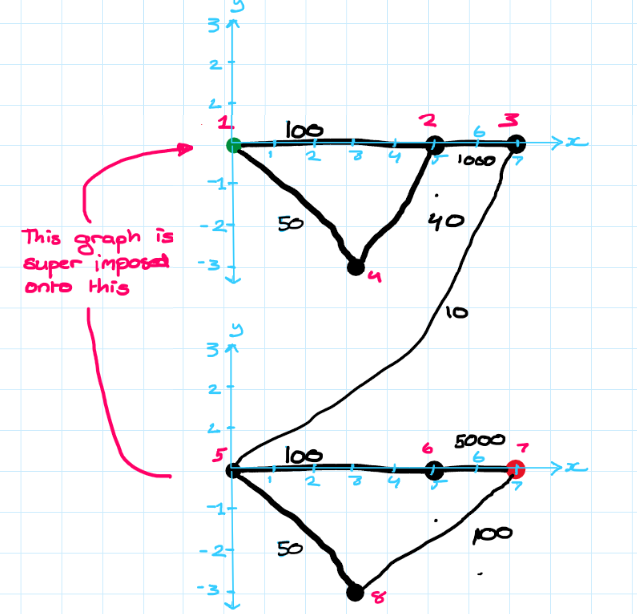 y
3
2
1
1 100 2 3
1 2 3 4 5 6 7 x
1000
-1
50 40
-2
-3
4
This graph is
super imposed
onto this
10
y
3
2
1
5 100 6 5000 7
1 2 3 4 5 6 7 x
-1
50 100
-2
-3
8